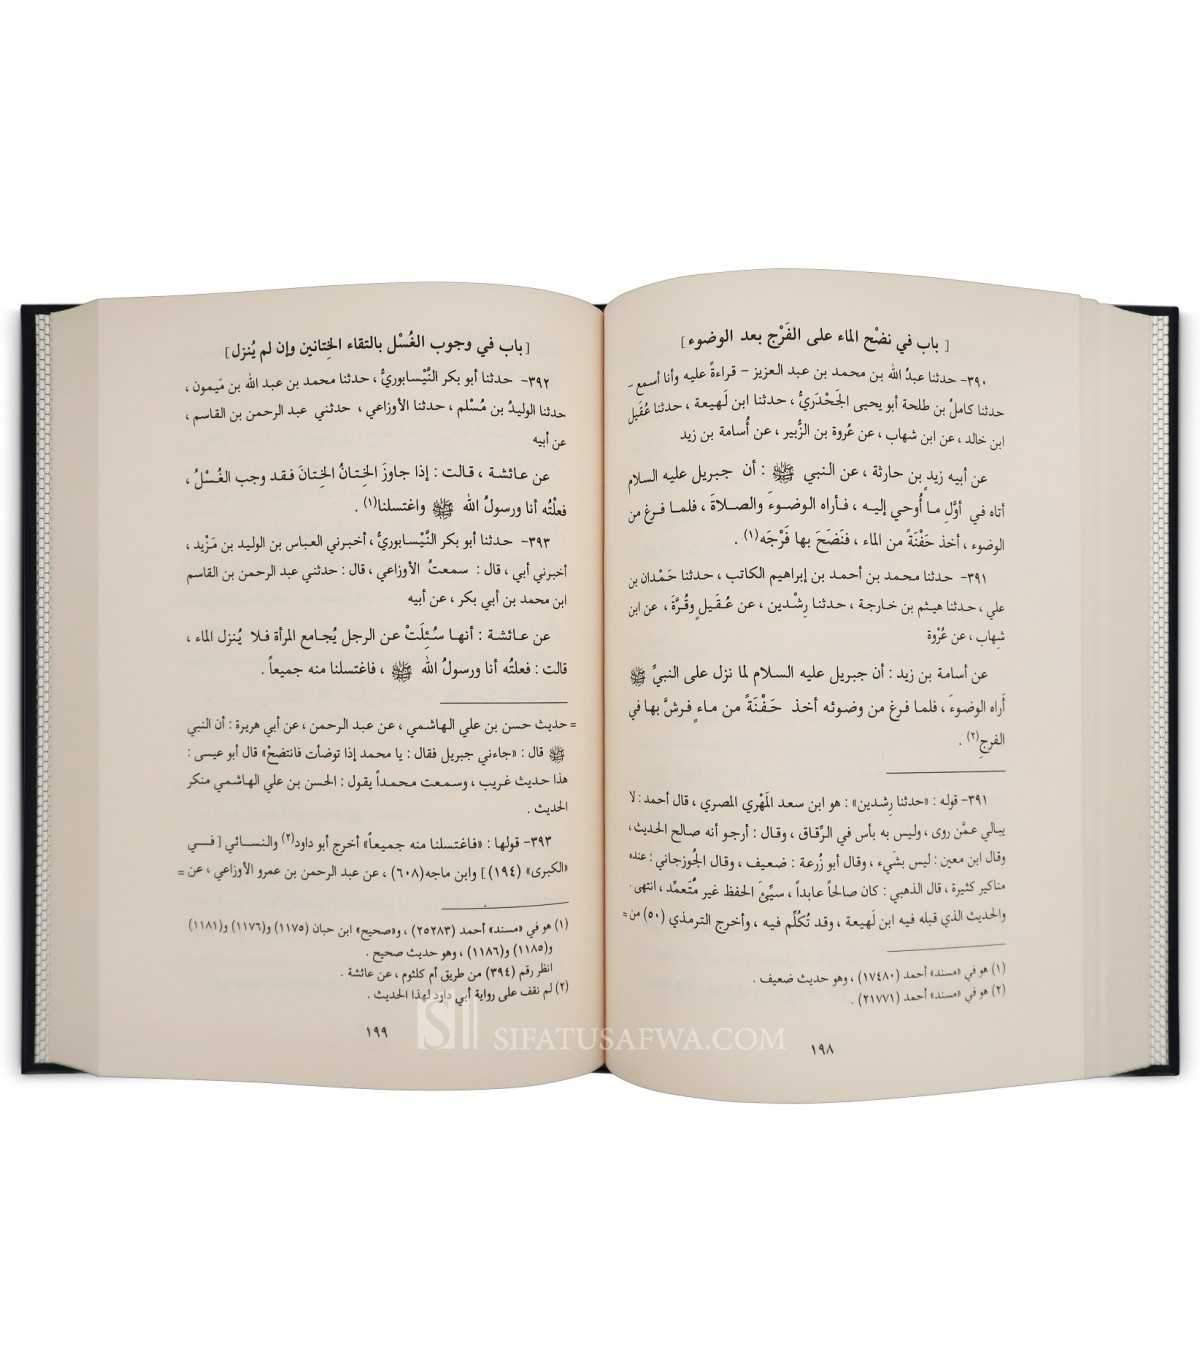 [ باب في نضْح الماء على الفَرْج بعد الوضوء ]
٣٩٠- حدثنا عبدُ الله بن محمد بن عبد العزيز – قراءةً عليه وأنا أسمع –
حدثنا كاملُ بن طلحة أبو يحيى الجَحْدَريُّ ، حدثنا ابن لَهيعة ، حدثنا عُقَيل
ابن خالد ، عن ابن شهاب ، عن عُروة بن الزُّبير ، عن أُسامة بن زيد
عن أبيه زيدِ بن حارثة ، عن النبي ﷺ : أن جبريل عليه السلام
أتاه في أوَّلِ ما أُوحي إليه ، فأراه الوضوءَ والصلاةَ ، فلما فرغ من
الوضوء ، أخذ حَفْنَةً من الماء ، فنَضَحَ بها فَرْجَه(١) .
٣٩١- حدثنا محمد بن أحمد بن إبراهيم الكاتب ، حدثنا حَمْدان بن
علي ، حدثنا هيثم بن خارجة ، حدثنا رِشْدين ، عن عُقَيلٍ وقُرَّةَ ، عن ابن
شِهاب ، عن عُرْوة
عن أسامة بن زيد : أن جبريل عليه السلام لما نزل على النبيِّ ﷺ
أَراه الوضوءَ ، فلما فرغ من وضوئه أخذ حَفْنَةً من ماءٍ فرشَّ بها في
الفرجِ(٢) .
٣٩١- قوله : «حدثنا رِشدين» : هو ابن سعد المَهْري المصري ، قال أحمد : لا
يبالي عمَّن روى ، وليس به بأس في الرِّقاق ، وقال : أرجو أنه صالح الحديث ،
وقال ابن معين : ليس بشيء ، وقال أبو زُرعة : ضعيف ، وقال الجُوزجاني : عنده
مناكير كثيرة ، قال الذهبي : كان صالحاً عابداً ، سيِّئَ الحفظ غير مُتَعمِّد ، انتهى .
والحديث الذي قبله فيه ابن لَهيعة ، وقد تُكُلِّم فيه ، وأخرج الترمذي (٥٠) من =
(١) هو في «مسند» أحمد (١٧٤٨٠) ، وهو حديث ضعيف .
(٢) هو في «مسند» أحمد (٢١٧٧١) .
١٩٨
[باب في وجوب الغُسْل بالتقاء الخِتانين وإن لم يُنزل]
٣٩٢- حدثنا أبو بكر النَّيْسابوريُّ ، حدثنا محمد بن عبد الله بن مَيمون ،
حدثنا الوليدُ بن مُسْلم ، حدثنا الأوزاعي ، حدثني عبد الرحمن بن القاسم ،
عن أبيه
عن عائشة ، قالت : إذا جاوزَ الخِتانُ الخِتانَ فقد وجب الغُسْلُ ،
فعلْتُه أنا ورسولُ الله ﷺ واغتسلنا(١) .
٣٩٣- حدثنا أبو بكر النَّيْسابوريُّ ، أخبرني العباس بن الوليد بن مَزْيد ،
أخبرني أبي ، قال : سمعتُ الأوزاعي ، قال : حدثني عبد الرحمن بن القاسم
ابن محمد بن أبي بكر ، عن أبيه
عن عائشة : أنها سُئِلَتْ عن الرجل يُجامع المرأة فلا يُنزل الماء ،
قالت : فعلتُه أنا ورسولُ الله ﷺ ، فاغتسلنا منه جميعاً .
= حديث حسن بن علي الهاشمي ، عن عبد الرحمن ، عن أبي هريرة : أن النبي
ﷺ قال : «جاءني جبريل فقال : يا محمد إذا توضأت فانتضحْ» قال أبو عيسى :
هذا حديث غريب ، وسمعت محمداً يقول : الحسن بن علي الهاشمي منكر
الحديث .
٣٩٣- قولها : «فاغتسلنا منه جميعاً» أخرج أبو داود(٢) والنسائي [ في
«الكبرى» (١٩٤)] وابن ماجه(٦٠٨) ، عن عبد الرحمن بن عمرو الأوزاعي ، عن =
(١) هو في «مسند» أحمد (٢٥٢٨٣) ، و«صحيح» ابن حبان (١١٧٥) و(١١٧٦) و(١١٨١)
و(١١٨٥) و(١١٨٦) ، وهو حديث صحيح .
انظر رقم (٣٩٤) من طريق أم كلثوم ، عن عائشة .
(٢) لم نقف على رواية أبي داود لهذا الحديث .
١٩٩
SIFATUSAFWA.COM